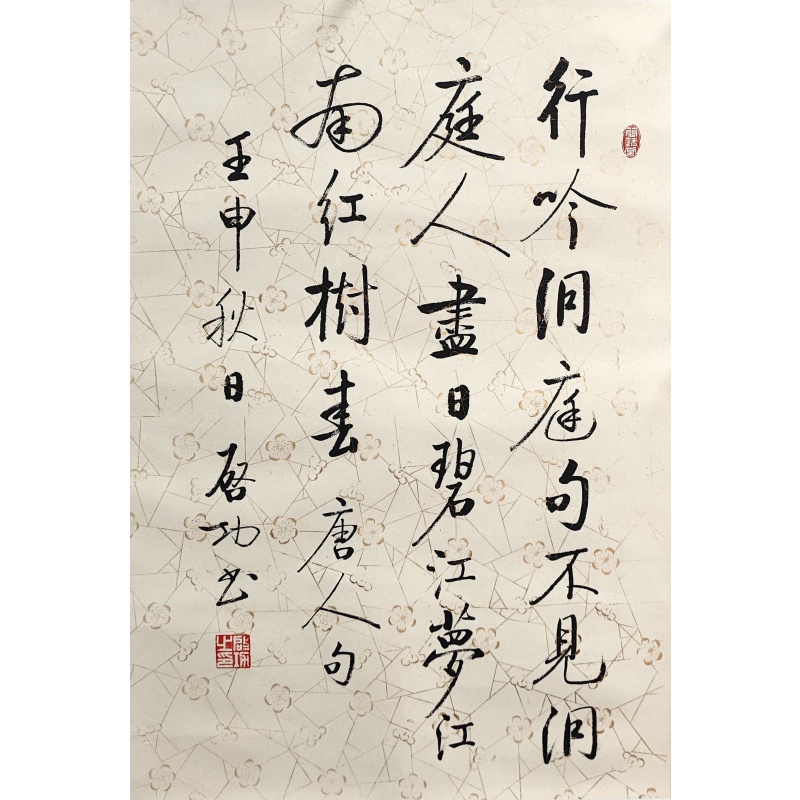 行吟洞庭句不見洞
庭人盡日碧江夢江
南紅樹春 唐人句
壬申秋日 启功书